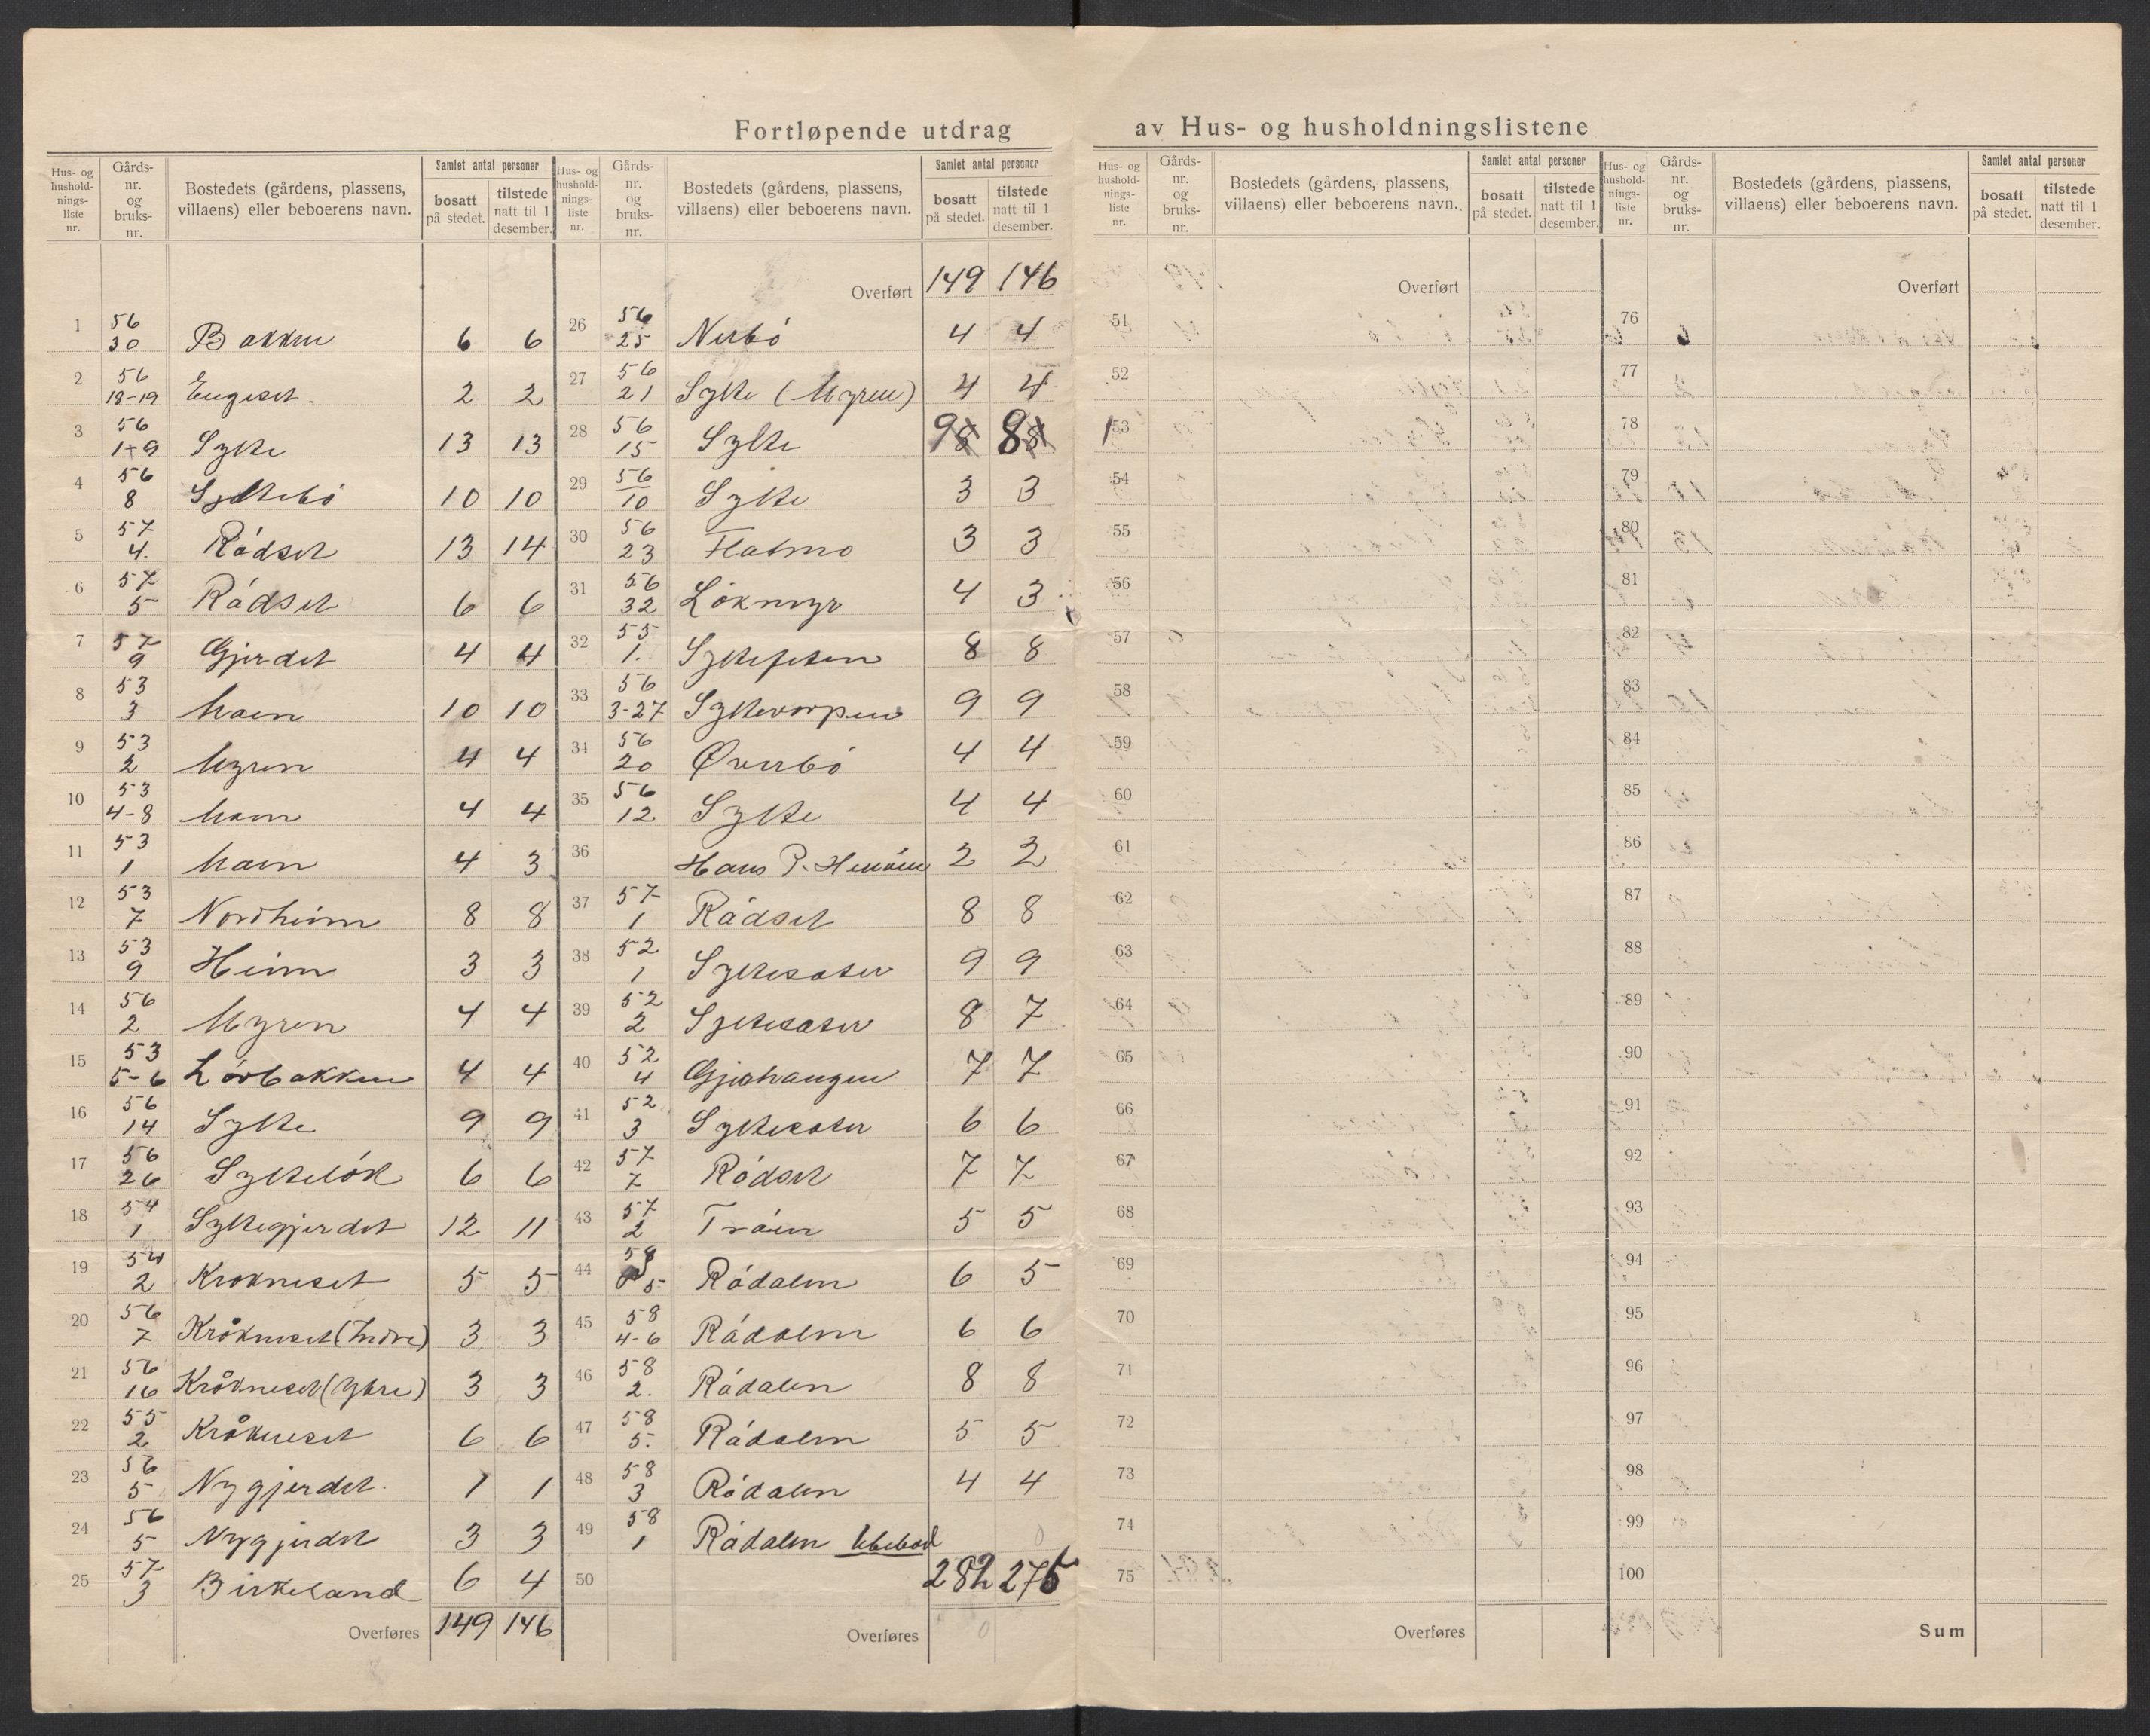 Fortløpende utdrag av Hus- og husholdningslistene
Hus- og hushold- nings- liste nr. Gårds- nr. og bruks- nr. Bostedets (gårdens, plassens, villaens) eller beboerens navn. Samlet antal personer bosatt på stedet. tilstede natt til 1 desember.
Hus- og hushold- nings- liste nr. Gårds- nr. og bruks- nr. Bostedets (gårdens, plassens, villaens) eller beboerens navn. Samlet antal personer bosatt på stedet. tilstede natt til 1 desember.
Hus- og hushold- nings- liste nr. Gårds- nr. og bruks- nr. Bostedets (gårdens, plassens, villaens) eller beboerens navn. Samlet antal personer bosatt på stedet. tilstede natt til 1 desember.
Hus- og hushold- nings- liste nr. Gårds- nr. og bruks- nr. Bostedets (gårdens, plassens, villaens) eller beboerens navn. Samlet antal personer bosatt på stedet. tilstede natt til 1 desember.
1 56 30 Bakken 6 6
2 56 18-19 Engeset. 2 2
3 56 1+9 Sylte 13 13
4 56 8 Syltebö 10 10
5 57 4. Rödset 13 14
6 57 5 Rödset 6 6
7 57 9 Gjerdet 4 4
8 53 3 Moen 10 10
9 53 2 Myren 4 4
10 53 4-8 Moen 4 4
11 53 1 Moen 4 3
12 53 7 Nordheim 8 8
13 53 9 Heim 3 3
14 56 2 Myren 4 4
15 53 5-6 Lörbakken 4 4
16 56 14 Sylte 9 9
17 56 26 Syltelök 6 6
18 54 1 Syltegjerdet 12 11
19 54 2 Krokneset 5 5
20 56 7 Kråkneset (Indre) 3 3
21 56 16 Kråkneset (Ytre) 3 3
22 55 2 Kråkneset 6 6
23 56 5 Nygjerdet. 1 1
24 56 5 Nygjerdet 3 3
25 57 3 Birkeland 6 4
Overføres 149 146
Overført 149 146
26 56 25 Nerbö 4 4
27 56 21 Sylte (Myren) 4 4
28 56 15 Sylte 9 8
29 56 10 Sylte 3 3
30 56 23 Flatmo 3 3
31 56 32 Lökmyr 4 3
32 55 1. Sylteseten 8 8
33 56 3-27 Syltevorpen 9 9
34 56 20 Øverbö 4 4
35 56 12 Sylte 4 4
36 Hans P. Henöen 2 2
37 57 1 Rödset 8 8
38 52 1 Syltesæter 9 9
39 52 2 Syltesæter 8 7
40 52 4 Gjerhaugen 7 7
41 52 3 Syltesæter 6 6
42 57 7 Rödset 7 7
43 57 2 Tröen 5 5
44 58 5 Rödalen 6 5
45 58 4-6 Rödalen 6 6
46 58 2. Rödalen 8 8
47 58 5. Rödalen 5 5
48 58 3 Rödalen 4 4
49 58 1 Rödalen Ubebod 0
50 282 275
Overføres 0
Overført
51
52
53
54
55
56
57
58
59
60
61
62
63
64
65
66
67
68
69
70
71
72
73
74
75
Overføres
Overført
76
77
78
79
80
81
82
83
84
85
86
87
88
89
90
91
92
93
94
95
96
97
98
99
100
Sum